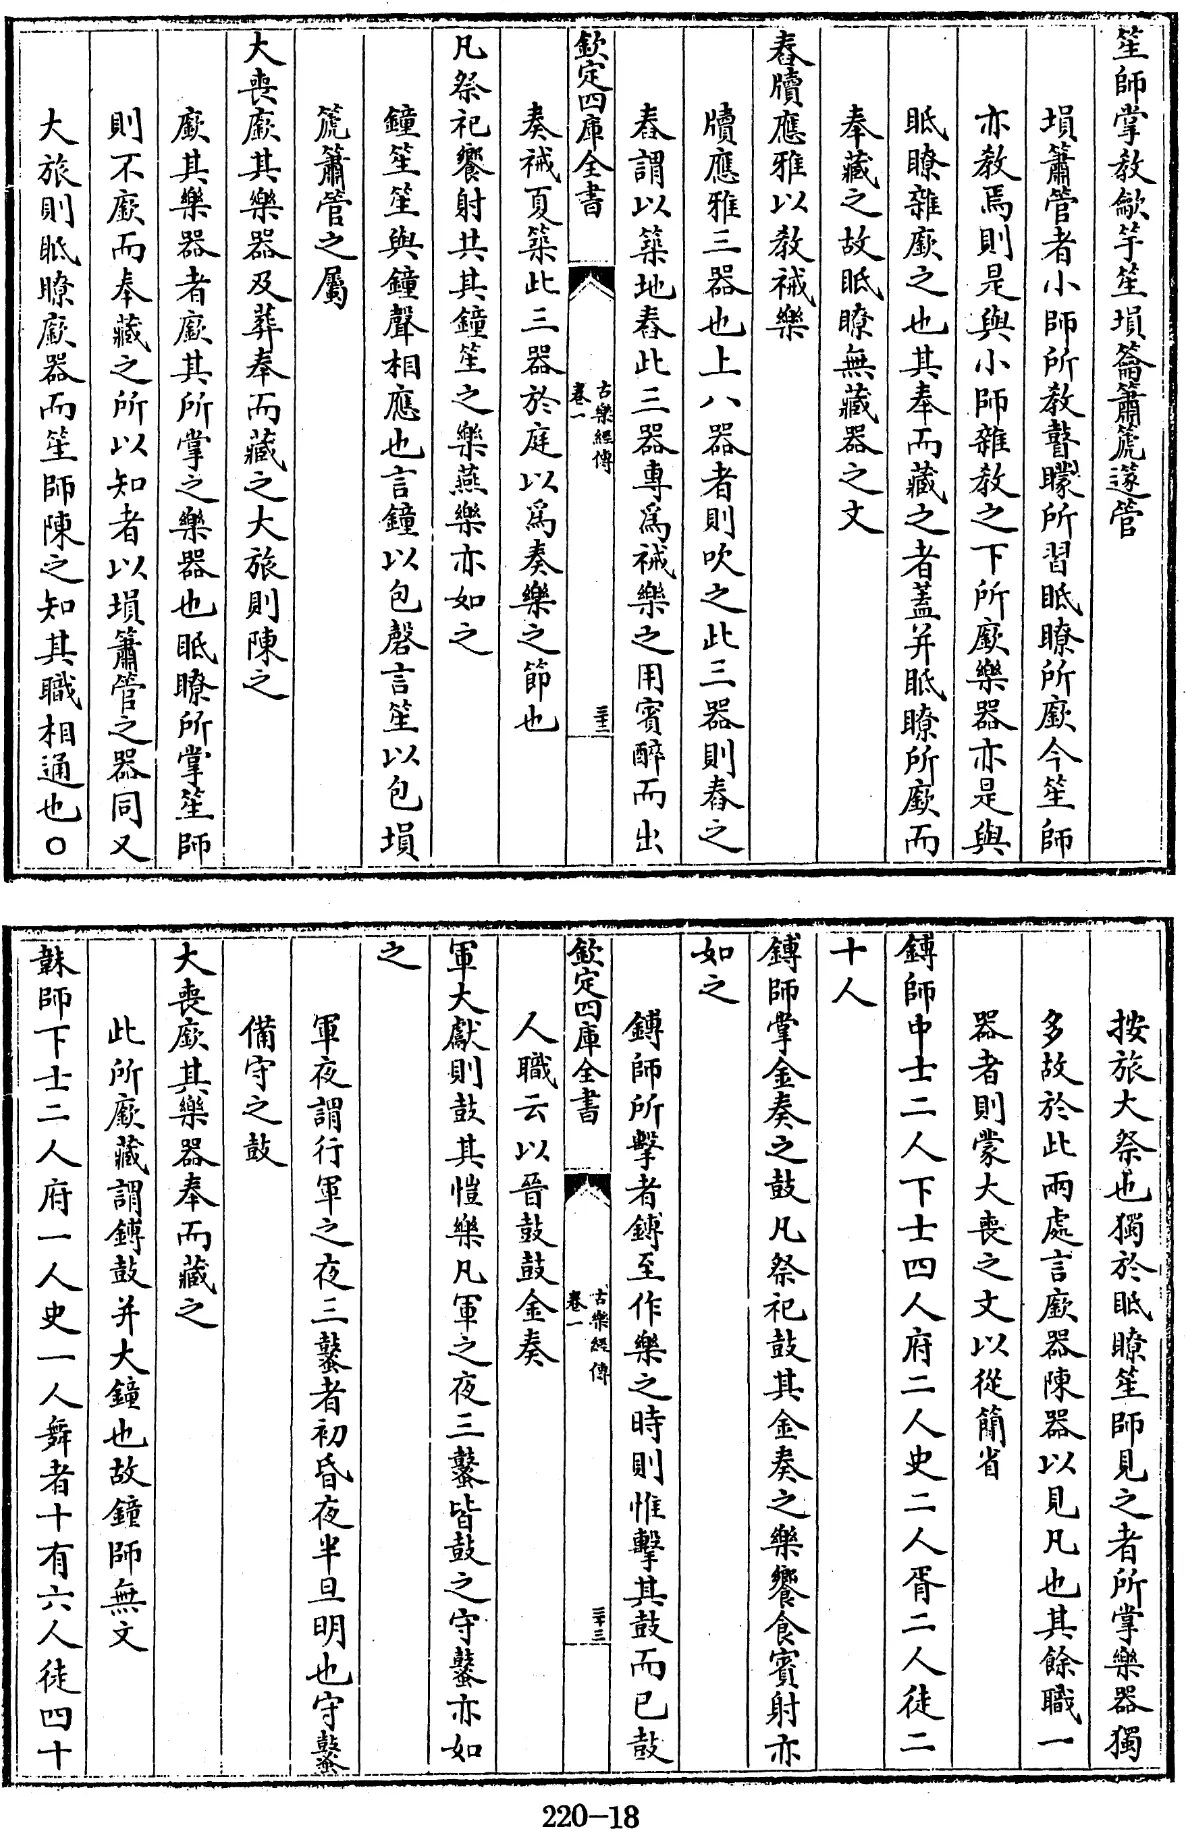 笙師掌教龡竽笙塤籥簫篪篴管
塤簫管者小師所教瞽矇所習眡瞭所廞今笙師
亦教焉則是與小師雜教之下所廞樂器亦是與
眡瞭雜廞之也其奉而藏之者蓋并眡瞭所廞而
奉藏之故眡瞭無藏器之文
舂牘應雅以教祴樂
牘應雅三器也上八器者則吹之此三器則舂之
舂謂以築地舂此三器專為祴樂之用賓醉而出
欽定四庫全書
古樂經傳
卷一
三十二
奏祴夏築此三器於庭以為奏樂之節也
凡祭祀饗射共其鐘笙之樂燕樂亦如之
鐘笙笙與鐘聲相應也言鐘以包磬言笙以包塤
篪簫管之屬
大喪廞其樂器及葬奉而藏之大旅則陳之
廞其樂器者廞其所掌之樂器也眡瞭所掌笙師
則不廞而奉藏之所以知者以塤簫管之器同又
大旅則眡瞭廞器而笙師陳之知其職相通也○
按旅大祭也獨於眡瞭笙師見之者所掌樂器獨
多故於此兩處言廞器陳器以見凡也其餘職一
器者則蒙大喪之文以從簡省
鎛師中士二人下士四人府二人史二人胥二人徒二
十人
鎛師掌金奏之鼓凡祭祀鼓其金奏之樂饗食賓射亦
如之
鎛師所擊者鎛至作樂之時則惟擊其鼓而已鼓
欽定四庫全書
古樂經傳
卷一
三十三
人職云以晉鼓鼓金奏
軍大獻則鼓其愷樂凡軍之夜三鼜皆鼓之守鼜亦如
之
軍夜謂行軍之夜三鼜者初昏夜半旦明也守鼜
備守之鼓
大喪廞其樂器奉而藏之
此所廞藏謂鎛鼓并大鐘也故鐘師無文
韎師下士二人府一人史一人舞者十有六人徒四十
220-18